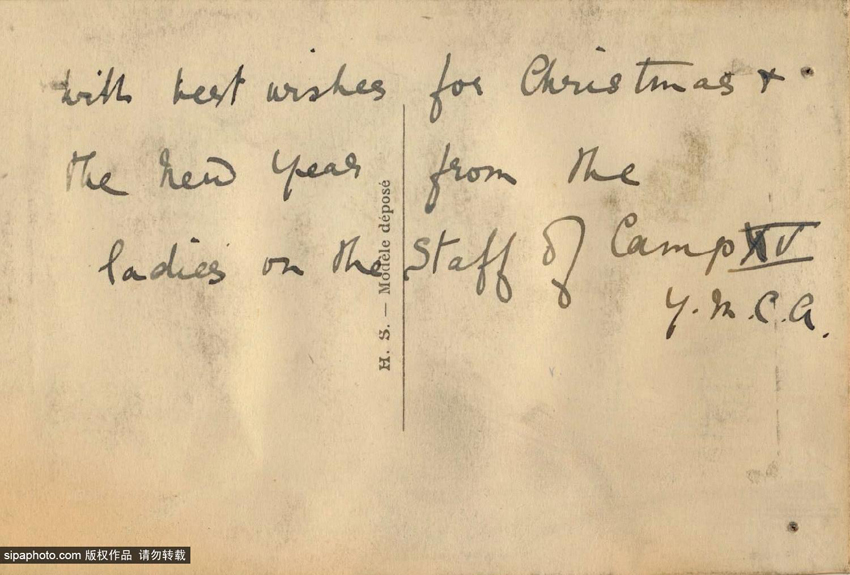 with best wishes for Christmas +
the new year from the
ladies on the Staff of Camp XV
Y.M.C.A.
H. S. — Modèle déposé
sipaphoto.com 版权作品 请勿转载